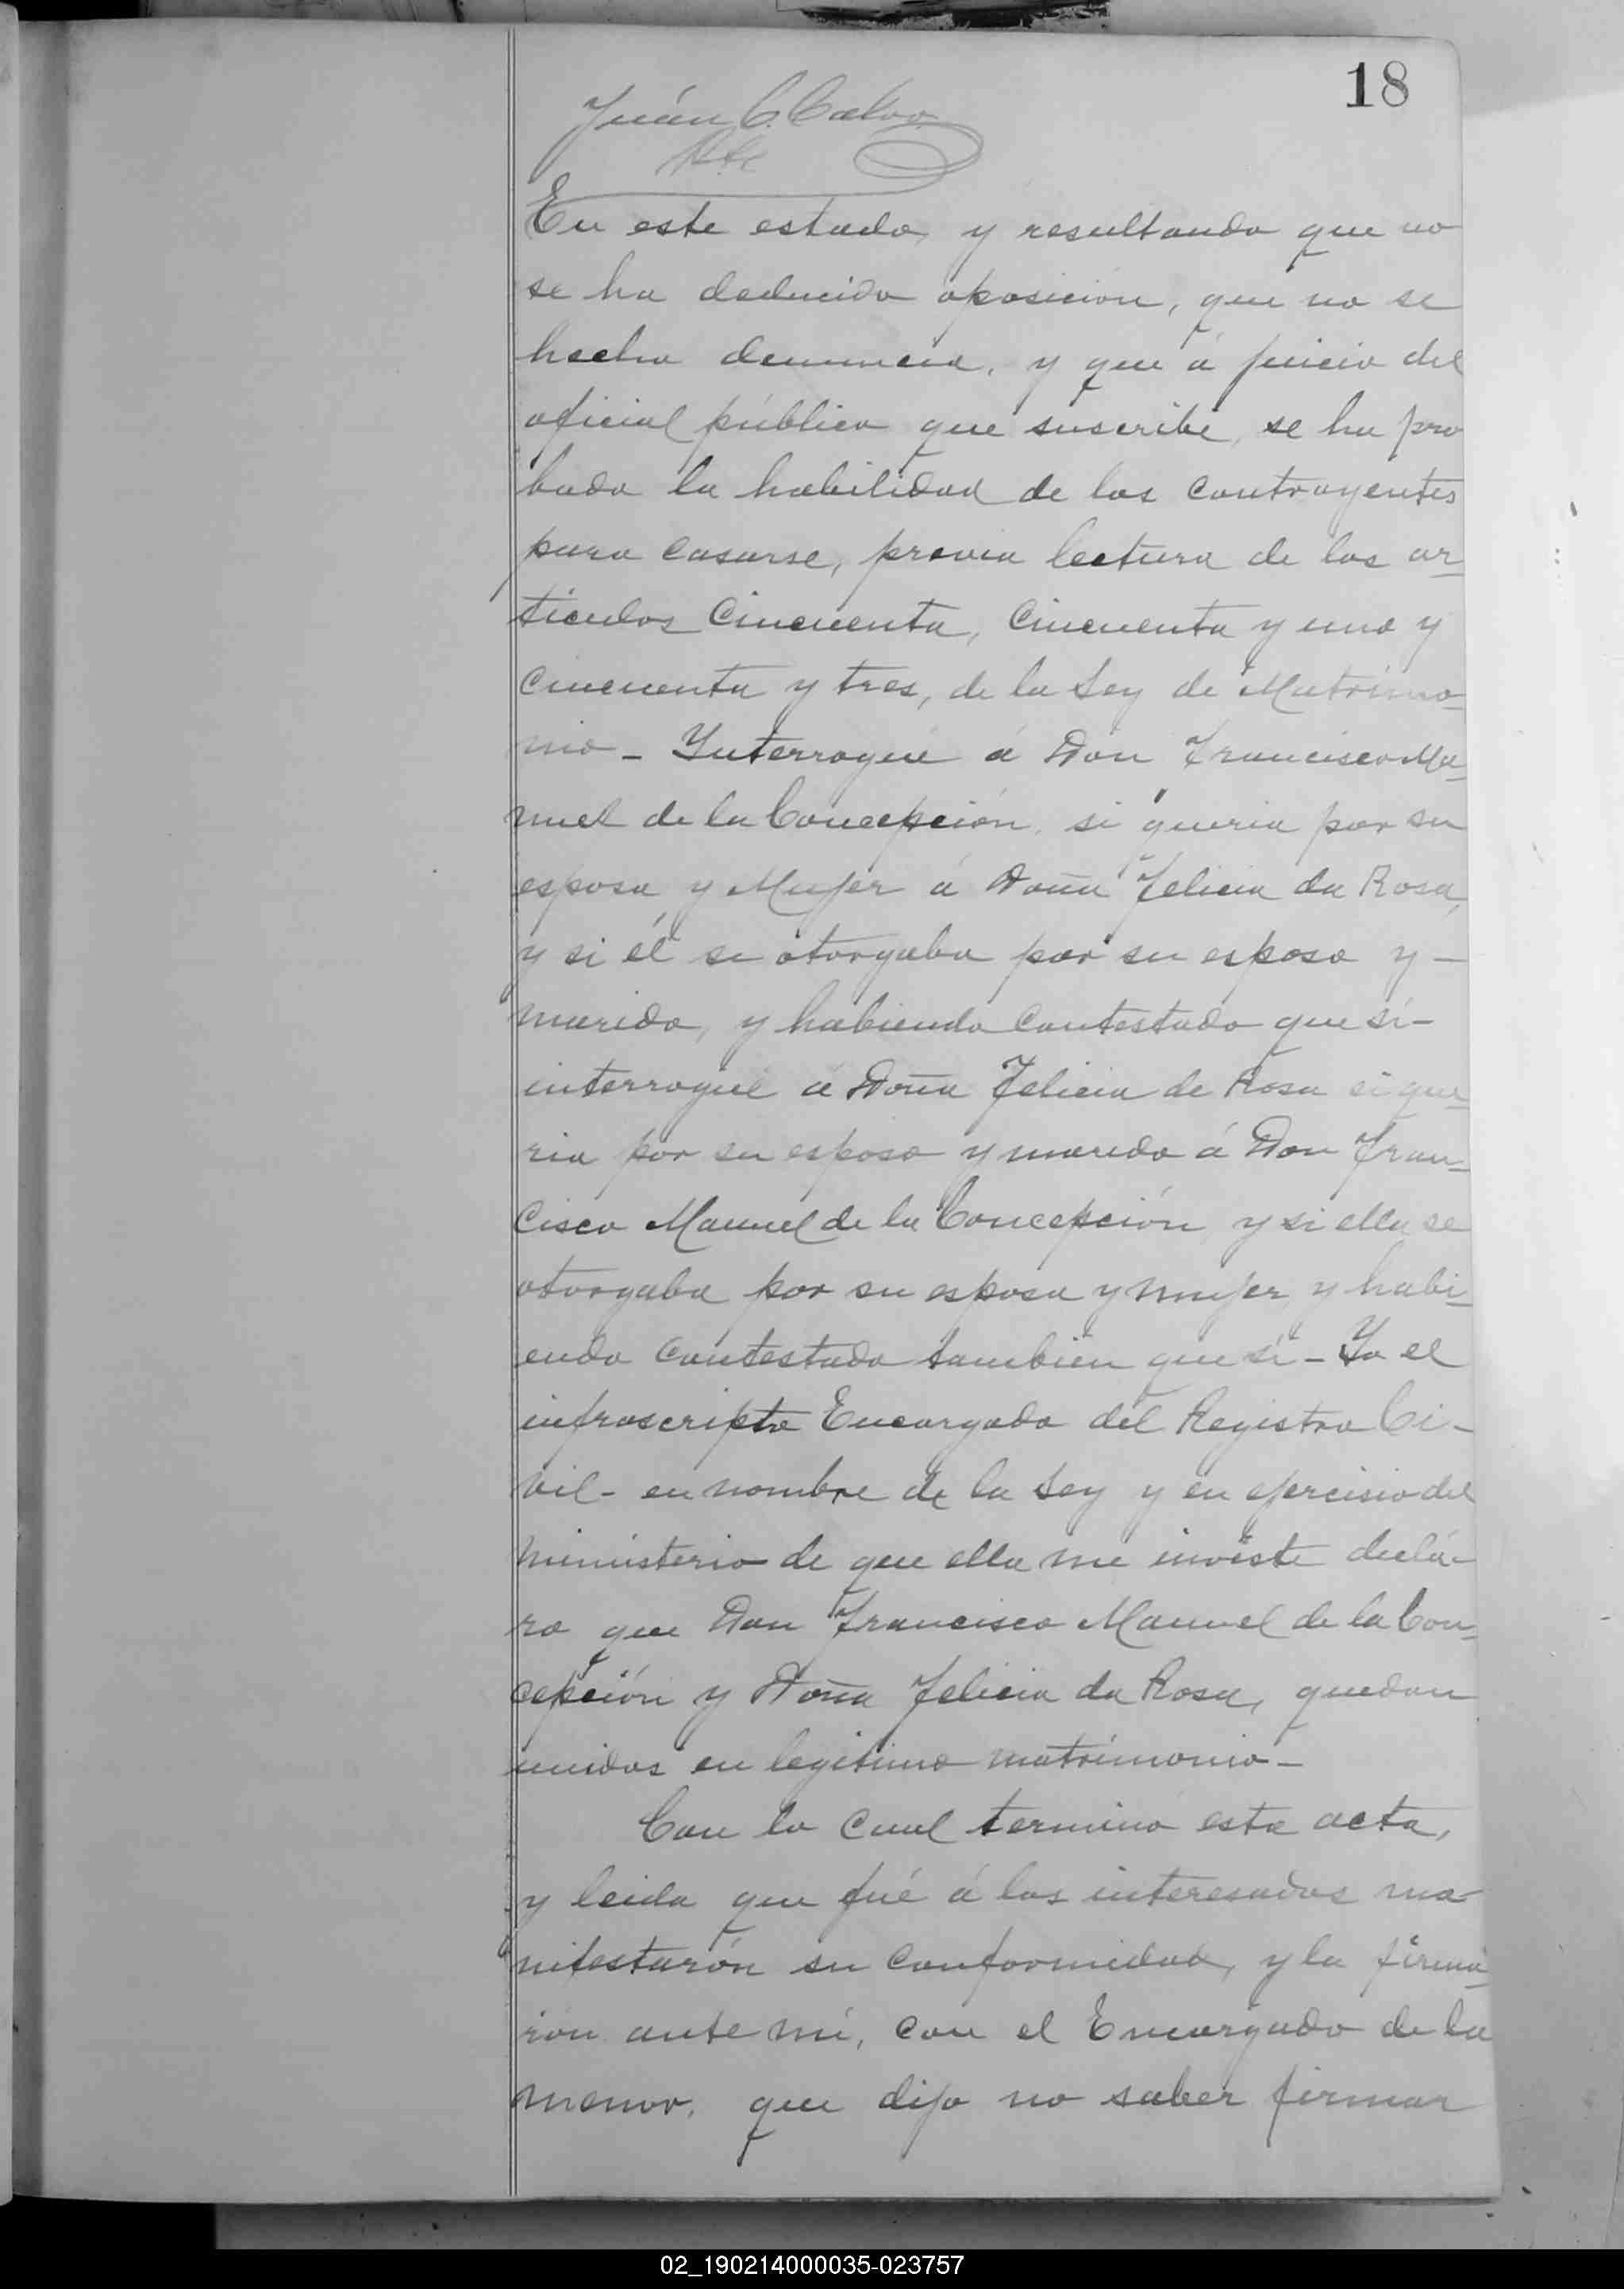 18
Juán C. Calvo
En este estado, y resultando que no
se ha deducido oposición, que no se
hecho denuncia, y que á juicio del
oficial público que suscribe, se ha pro
bado la habilidad de los contrayentes
para casarse, previa lectura de los ar-
tículos Cincuenta, Cincuenta y uno y
cincuenta y tres, de la Ley de Matrimo-
nio - Interrogué á Don Francisco Ma-
nuel de la Concepción, si queria por su
esposa y Mujer á Doña Felicia da Rosa,
y si él se otorgaba por su esposo y -
marido, y habiendo contestado que sí -
interrogué á Doña Felicia de Rosa si que-
ria por su esposo y marido á Don Fran-
cisco Manuel de la Concepción, y si ella se
otorgaba por su esposa y mujer, y habi-
endo contestado también que sí - Yo el
infrascripto Encargado del Registro Ci-
vil - en nombre de la Ley y en ejercisio del
ministerio de que ella me inviste declá-
ro que Don Francisco Manuel de la Con-
cepción y Doña Felicia da Rosa, quedan
unidos en legitimo matrimonio -
Con lo cual terminó esta acta,
y leida que fué á los interesados ma
nifestarón su conformidad, y la firma-
rón ante mí, con el Encargado de la
menor, que dijo no saber firmar
02_190214000035-023757